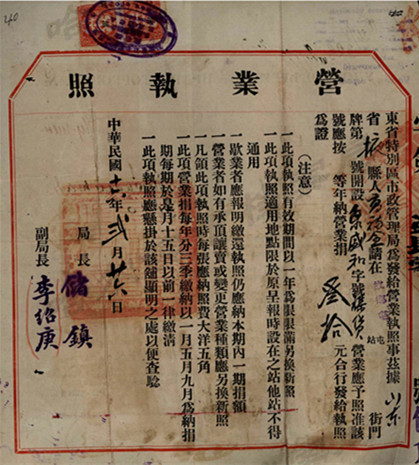 營業執照
東省特別區市政管理局爲發給營業執照事茲據山東
省掖縣人 請在 街門
牌第 號開設泉盛和字號雜貨營業應予照准該
號應按 等年納營業捐叁拾元合行發給執照
爲證
(注意)
一此項執照有效期間以一年爲限限滿另換新照
一此項執照適用地點限於原呈報時設在之站他站不得
通用
一歇業者應報明繳還執照仍應納本期內一期捐額
一營業者如有承頂讓賣或變更營業種類應另換新照
一凡領此項執照時每張應納照費大洋五角
一此項營業捐每年分三季繳納以一月五月九月爲納捐
期每期於是月十五日以前一律繳清
一此項執照應懸掛於該舖顯明之處以便查騐
中華民國 年貳月廿六日
局長儲鎮
副局長李紹庚